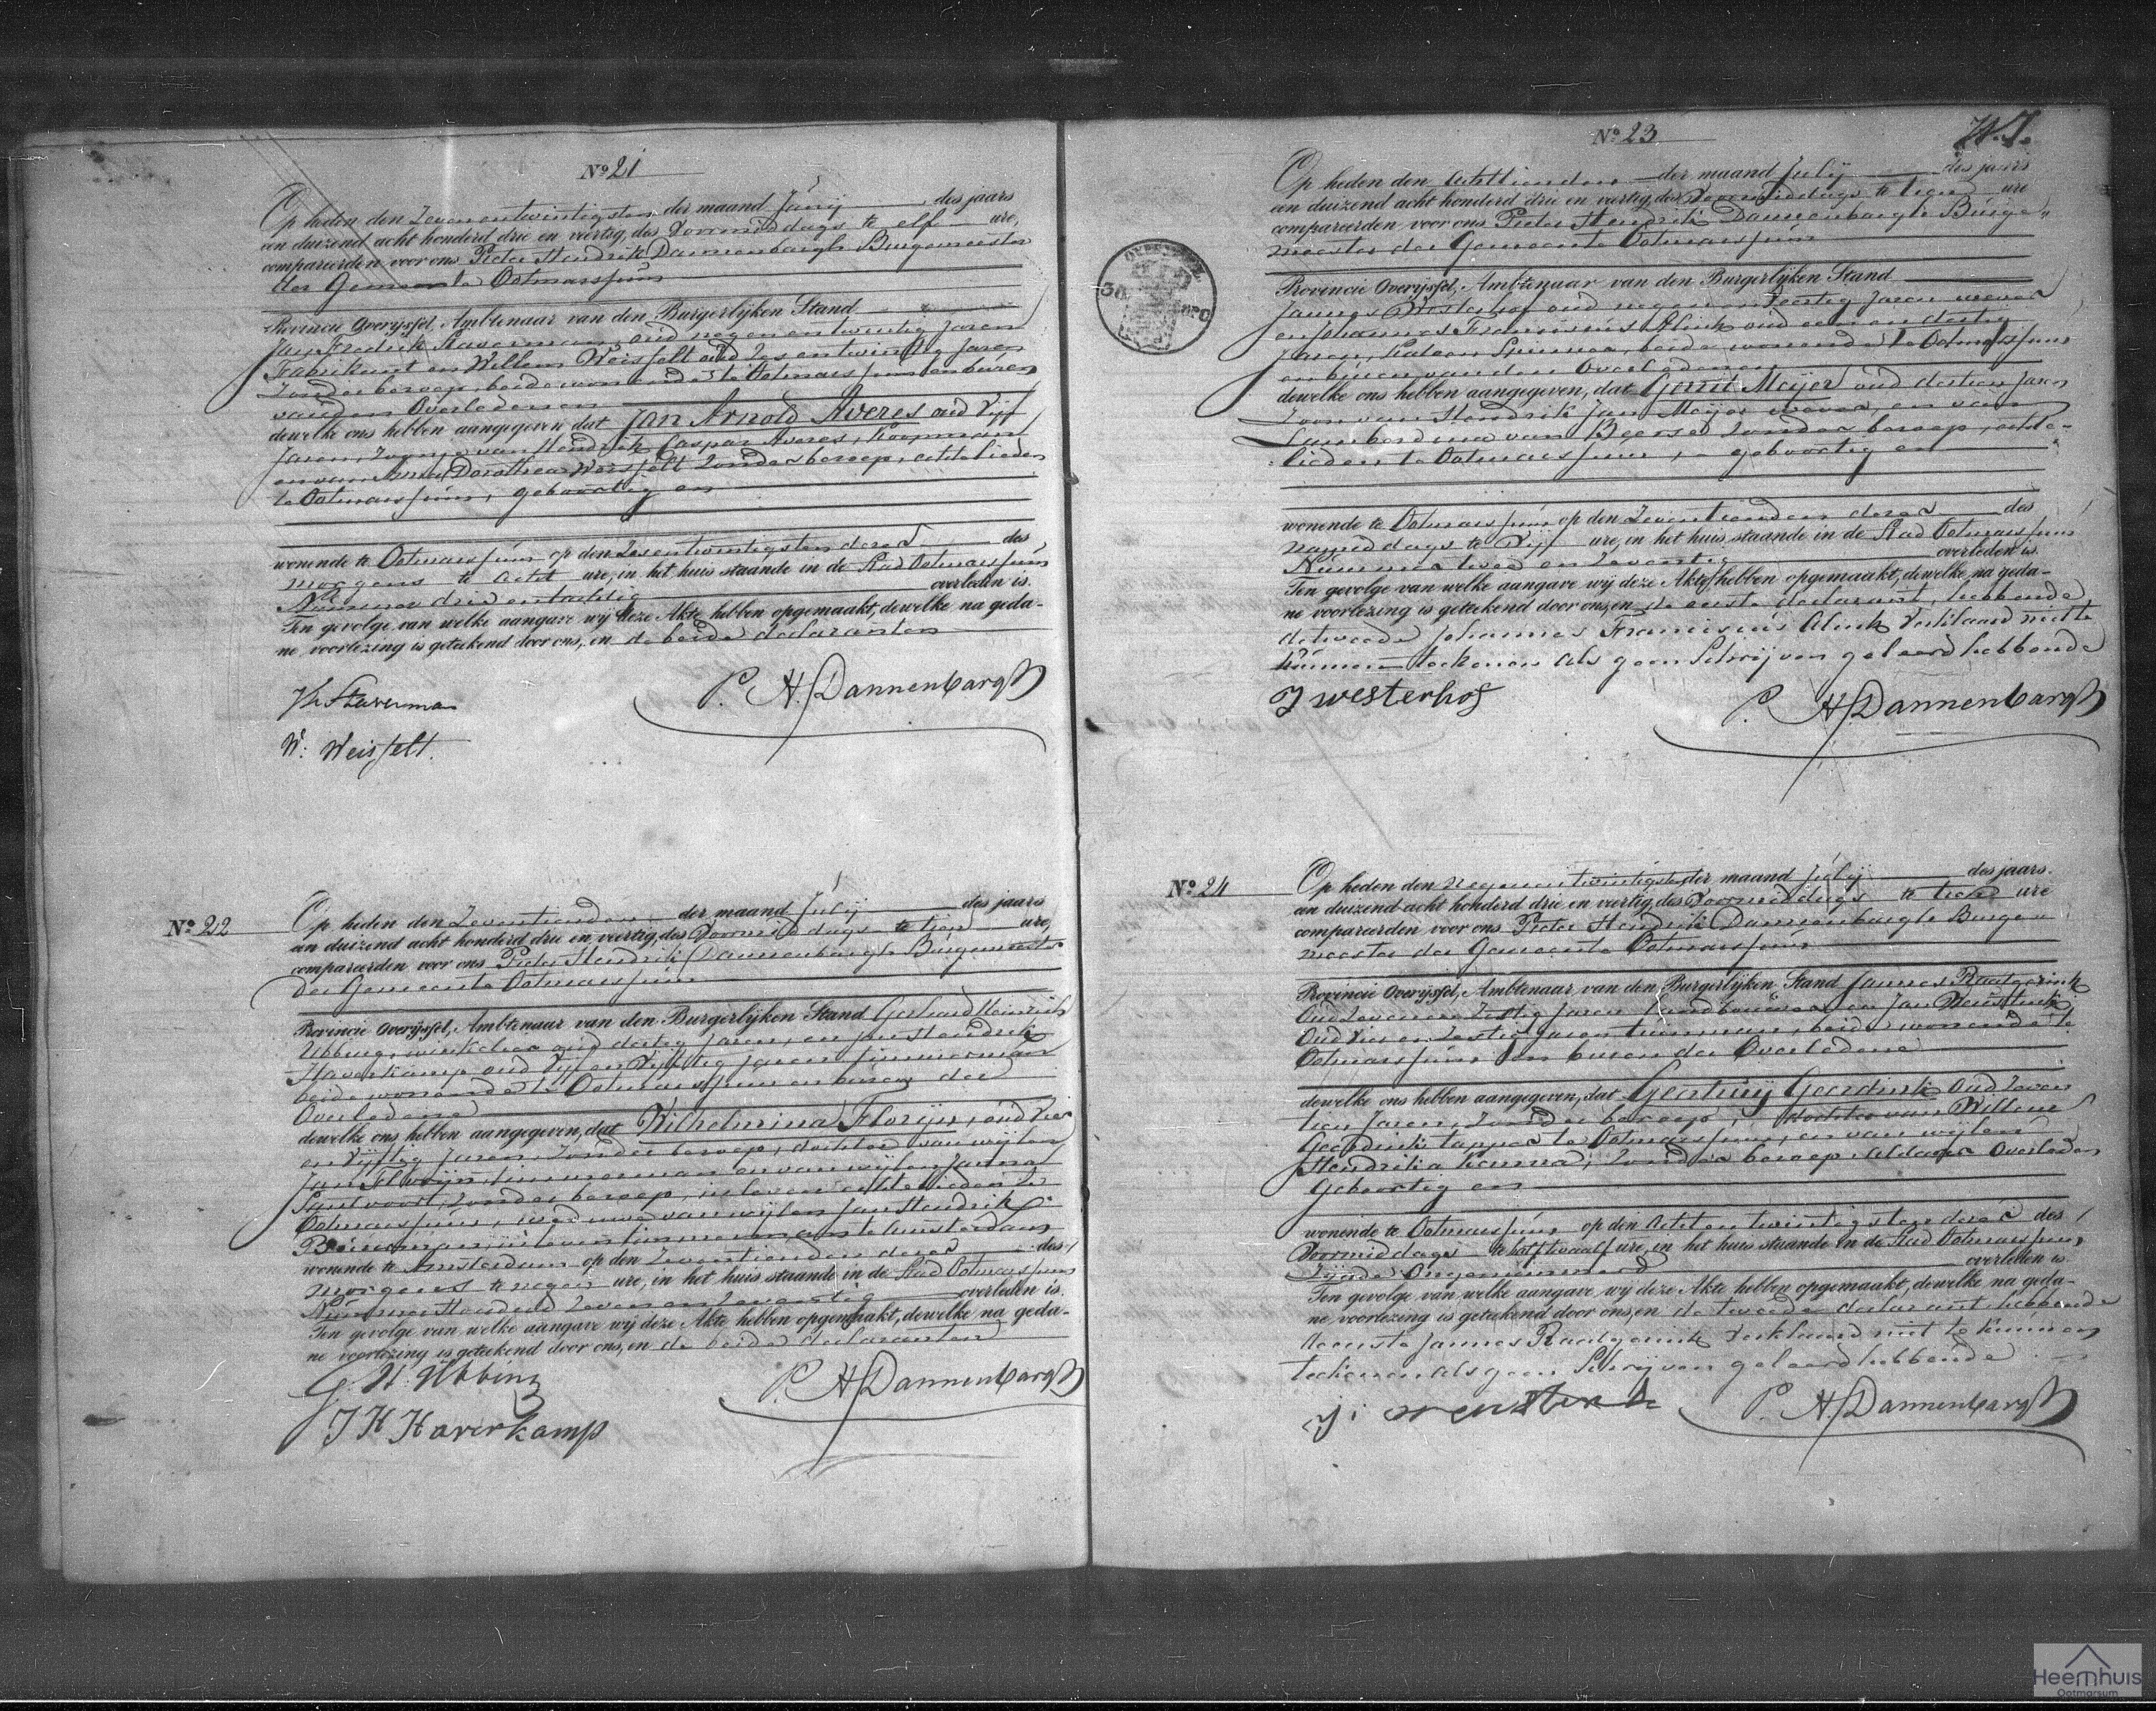 Nº 21
Op heden den Zevenentwintigsten der maand Junij des jaars
een duizend acht honderd drie en veertig, des Voormiddags te elf ure,
compareerden voor ons Pieter Hendrik Dannenbargh Burgemeester
der Gemeente Ootmarssum
Provincie Overijssel, Ambtenaar van den Burgerlijken Stand
Jan Fredrik Staverman, oud negenentwintig Jaren
Fabrikant en Willem Weisfelt oud Zes entwintig Jaren
Zonder beroep, beide wonende te Ootmarssum en buren
van den Overledenen
dewelke ons hebben aangegeven dat Jan Arnold Averes oud Vijf
Jaren, Zoontje van Hendrik Caspar Averes, Koopman
en van Anna Dorothea Weisfelt Zonder beroep, echtelieden
te Ootmarssum, geboortig en
wonende te Ootmarssum op den Zesentwintigsten dezer des
morgens te acht ure, in het huis staande in de Stad Ootmarssum
Nummer drie entachtig overleden is.
Ten gevolge van welke aangave wij deze Akte hebben opgemaakt, dewelke na geda-
ne voorlezing is geteekend door ons, en de beide declaranten
P. H. Dannenbargh
W: Weisfelt.
Nº 22
Op heden den Zeventienden der maand Julij des jaars
een duizend acht honderd drie en veertig, des Voormiddags te tien ure,
compareerden voor ons Pieter Hendrik Dannenbargh Burgemeester
der Gemeente Ootmarssum
Provincie Overijssel, Ambtenaar van den Burgerlijken Stand Gerhard Heinrich
Ubbing, winkelier oud dertig Jaren, en Jan Hendrik
Haverkamp oud Vijf en Vijftig Jaren timmerman
beide wonende te Ootmarssum en buren der
Overledene
dewelke ons hebben aangegeven, dat Wilhelmina Florijn, oud Vier
en Vijftig Jaren, Zonder beroep, dochter van wijlen
Jan Florijn timmerman en van wijlen Janna
Santvoort, Zonder beroep, in leven echtelieden te
Ootmarssum, weduwe van wijlen Jan Hendrik
in leven timmerman te Amsterdam
wonende te Amsterdam op den Zeventienden dezer des
morgens te negen ure, in het huis staande in de Stad Ootmarssum
Nummer Honderd Zeven en Zeventig overleden is.
Ten gevolge van welke aangave wij deze Akte hebben opgemaakt, dewelke na geda-
ne voorlezing is geteekend door ons, en de beide declaranten
G. H. Ubbing
P. H. Dannenbargh
J H Haverkamp
Nº 23
Op heden den Achttienden der maand Julij des jaars
een duizend acht honderd drie en veertig, des Voormiddags te tien ure
compareerden voor ons Pieter Hendrik Dannenbargh Burge„
meester der Gemeente Ootmarssum
Provincie Overijssel, Ambtenaar van den Burgerlijken Stand
Jannes Westerhof oud negen en Veertig Jaren wever
en Johannes Franciscus Alink oud een en dertig
Jaren, Katoen Spinner, beide wonende te Ootmarssum
en buren van den Overledenen
dewelke ons hebben aangegeven, dat Gerrit Meijer oud dertien Jaren
Zoon van Hendrik Jan Meijer wever, en van
van Beersel Zonder beroep, echte-
lieden te Ootmarssum, geboortig en
wonende te Ootmarssum op den Zeventienden dezer des
namiddags te Vijf ure, in het huis staande in de Stad Ootmarssum
Nummer twee en Zeventig overleden is.
Ten gevolge van welke aangave wij deze Akte hebben opgemaakt, dewelke na geda-
ne voorlezing is geteekend door ons, en de eerste declarant, hebbende
de tweede Johannes Franciscus Alink Verklaard niet te
kunnen teekenen als geen Schrijven geleerd hebbende
J Westerhof
P. H. Dannenbargh
Nº 24
Op heden den negenentwintigsten der maand Julij des jaars
een duizend acht honderd drie en veertig, des Voormiddags te tien ure
compareerden voor ons Pieter Hendrik Dannenbargh Burge„
meester der Gemeente Ootmarssum
Provincie Overijssel, Ambtenaar van den Burgerlijken Stand Jannes Raatgerink
Oud Zeven en Zestig Jaren Landbouwer en Jan
Oud Vier en Zestig Jaren tuinman, beide wonende te
Ootmarssum en buren der Overledene
dewelke ons hebben aangegeven, dat Geertruij Geerdink Oud Zeven
tien Jaren, Zonder beroep, dochter van Willem
Geerdink tapper te Ootmarssum, en van wijlen
Hendrika Zonder beroep aldaar Overleden
Geboortig en
wonende te Ootmarssum op den Acht en twintigsten dezer des
Voormiddags te half twaalf ure, in het huis staande in de Stad Ootmarssum,
Zijnde Ongenummerd overleden is
Ten gevolge van welke aangave wij deze Akte hebben opgemaakt, dewelke na geda-
ne voorlezing is geteekend door ons, en de tweede declarant hebbende
de eerste Jannes Raatgerink Verklaard niet te kunnen
teekenen als geen Schrijven geleerd hebbende
P. H. Dannenbargh
Heemhuis
Ootmarsum